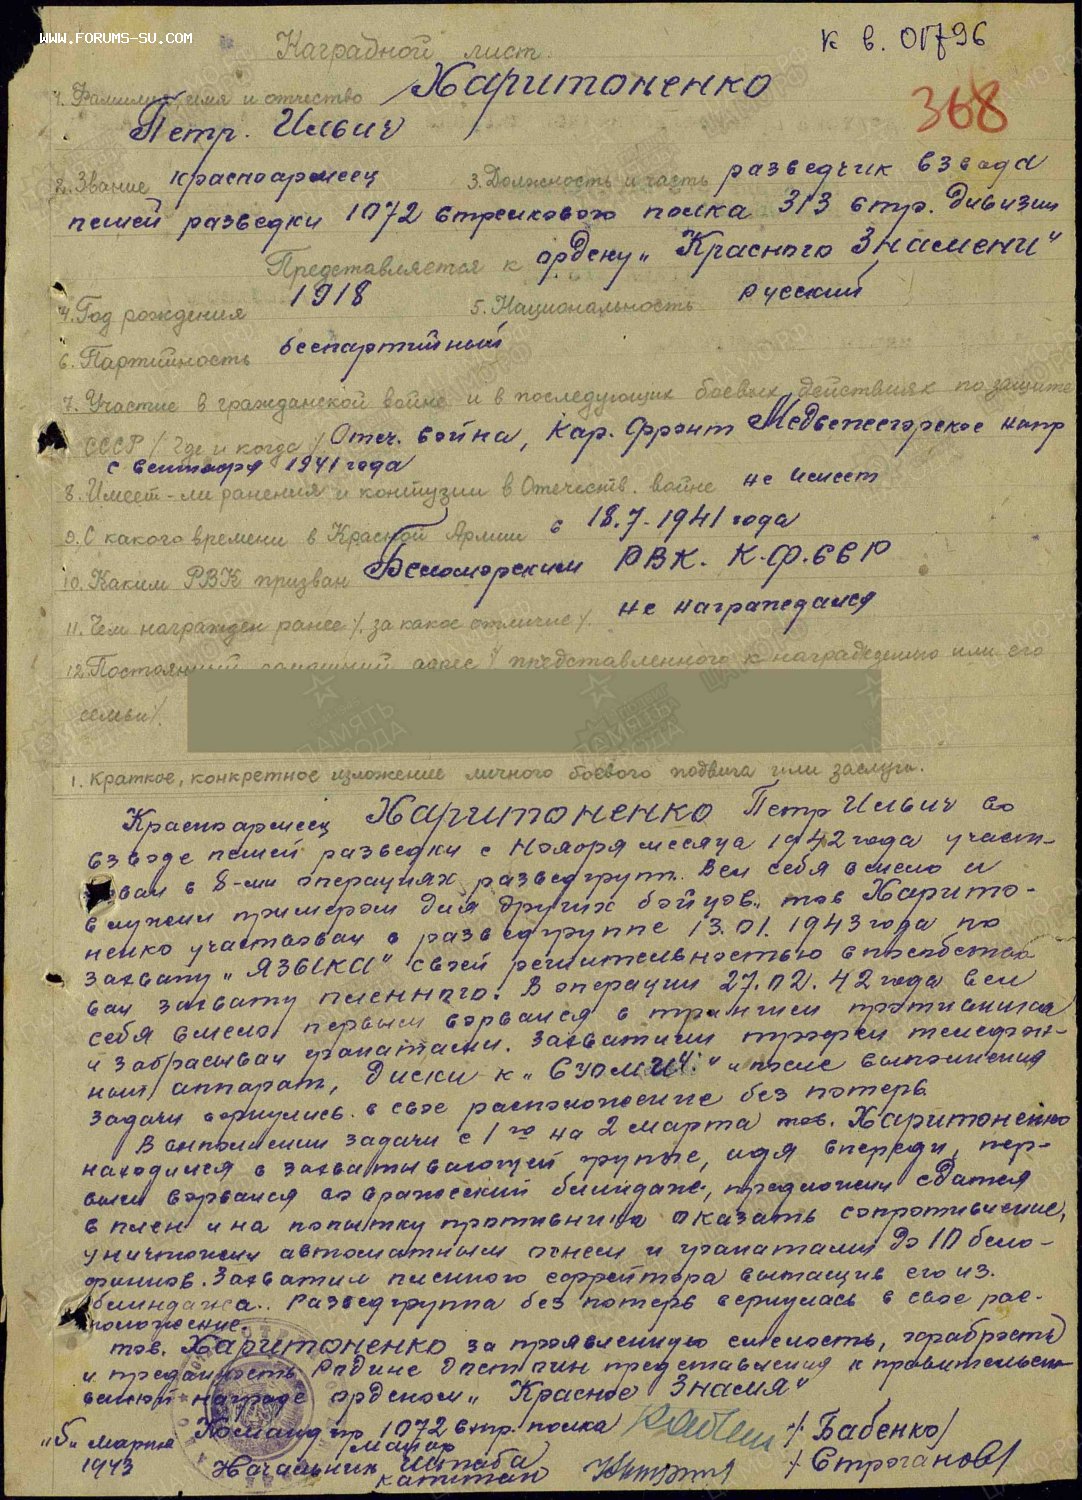 WWW.FORUMS-SU.COM
к в. 01796
Наградной лист.
368
1. Фамилия, имя и отчество Харитоненко
Петр. Ильич
2. Звание красноармеец 3. Должность и часть разведчик взвода
пешей разведки 1072 стрелкового полка 313 стр. дивизии
Представляется к ордену „Красного Знамени"
4. Год рождения 1918 5. Национальность русский
6. Партийность беспартийный
7. Участие в гражданской войне и в последующих боевых действиях по защите
СССР /где и когда/ Отеч. война, Кар. Фронт Медвежегорское напр
с сентября 1941 года
8. Имеет-ли ранения и контузии в Отечеств. войне не имеет
9. С какого времени в Красной Армии с 18.7-1941 года
10. Каким РВК призван Беломорским РВК. К.Ф.ССР
11. Чем награжден ранее /за какое отличие/. не награждался
12. Постоянный домашний адрес представленного к награждению или его
семьи/.
1. Краткое, конкретное изложение личного боевого подвига или заслуги.
Красноармеец Харитоненко Петр Ильич во
взводе пешей разведки с ноября месяца 1942 года участ-
вовал в 8-ми операциях разведгрупп. Вел себя смело и
служил примером для других бойцов. тов Харито-
ненко участвовал в разведгруппе 13.01.1943 года по
захвату „ЯЗЫКА" своей решительностью способство
вал захвату пленного. В операции 27.02.42 года вел
себя смело первым ворвался в траншеи противника
и забрасывал гранатами. Захватили трофеи телефон-
ный аппарат, диски к „Суоми". и после выполнения
задачи вернулись в свое расположение без потерь
В выполнении задачи с 1го на 2 марта тов. Харитоненко
находился в захватывающей группе, идя впереди, пер-
вым ворвался во вражеский блиндаж, предложил сдаться
в плен и на попытку противника оказать сопротивление,
уничтожил автоматным огнем и гранатами до 10 бело-
финнов. Захватил пленного ефрейтора вытащив его из
блиндажа.. Разведгруппа без потерь вернулась в свое рас-
положение.
тов. Харитоненко за проявленную смелость, храбрость
и преданность Родине достоин представления к правительст-
венной награде орденом „Красное Знамя"
Командир 1072 стр. полка
майор /Бабенко/
„5" марта
1943 Начальник штаба
капитан /Строганов/